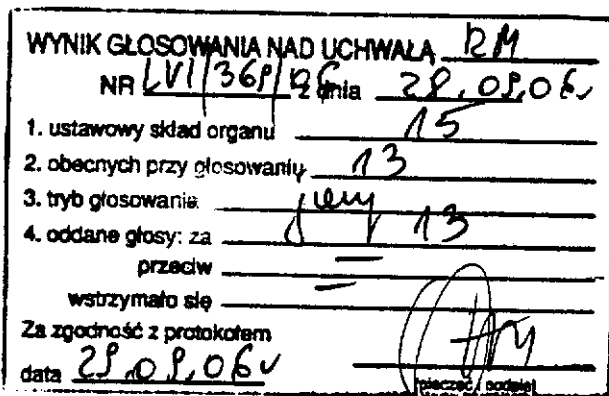 WYNIK GŁOSOWANIA NAD UCHWAŁĄ RM
NR LVI/369/06 z dnia 29.09.06r
1. ustawowy skład organu 15
2. obecnych przy głosowaniu 13
3. tryb głosowania jawny
4. oddane głosy: za 13
przeciw —
wstrzymało się —
Za zgodność z protokołem
data 29.09.06r
pieczęć i podpis